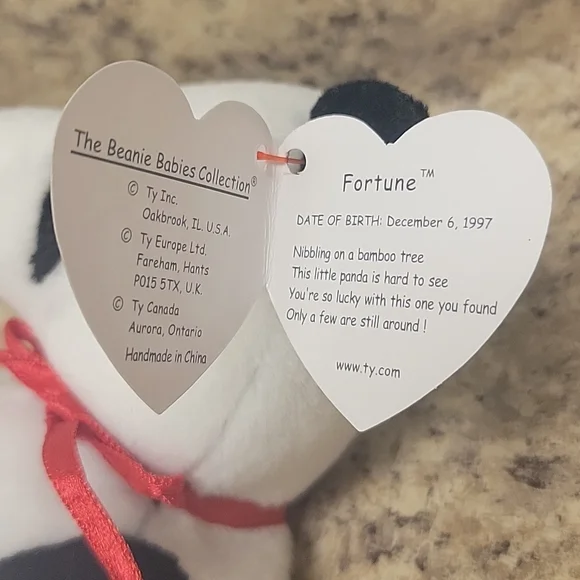 The Beanie Babies Collection®
© Ty Inc.
Oakbrook, IL. U.S.A.
© Ty Europe Ltd.
Fareham, Hants
P015 5TX, U.K.
© Ty Canada
Aurora, Ontario
Handmade in China
Fortune™
DATE OF BIRTH: December 6, 1997
Nibbling on a bamboo tree
This little panda is hard to see
You're so lucky with this one you found
Only a few are still around !
www.ty.com